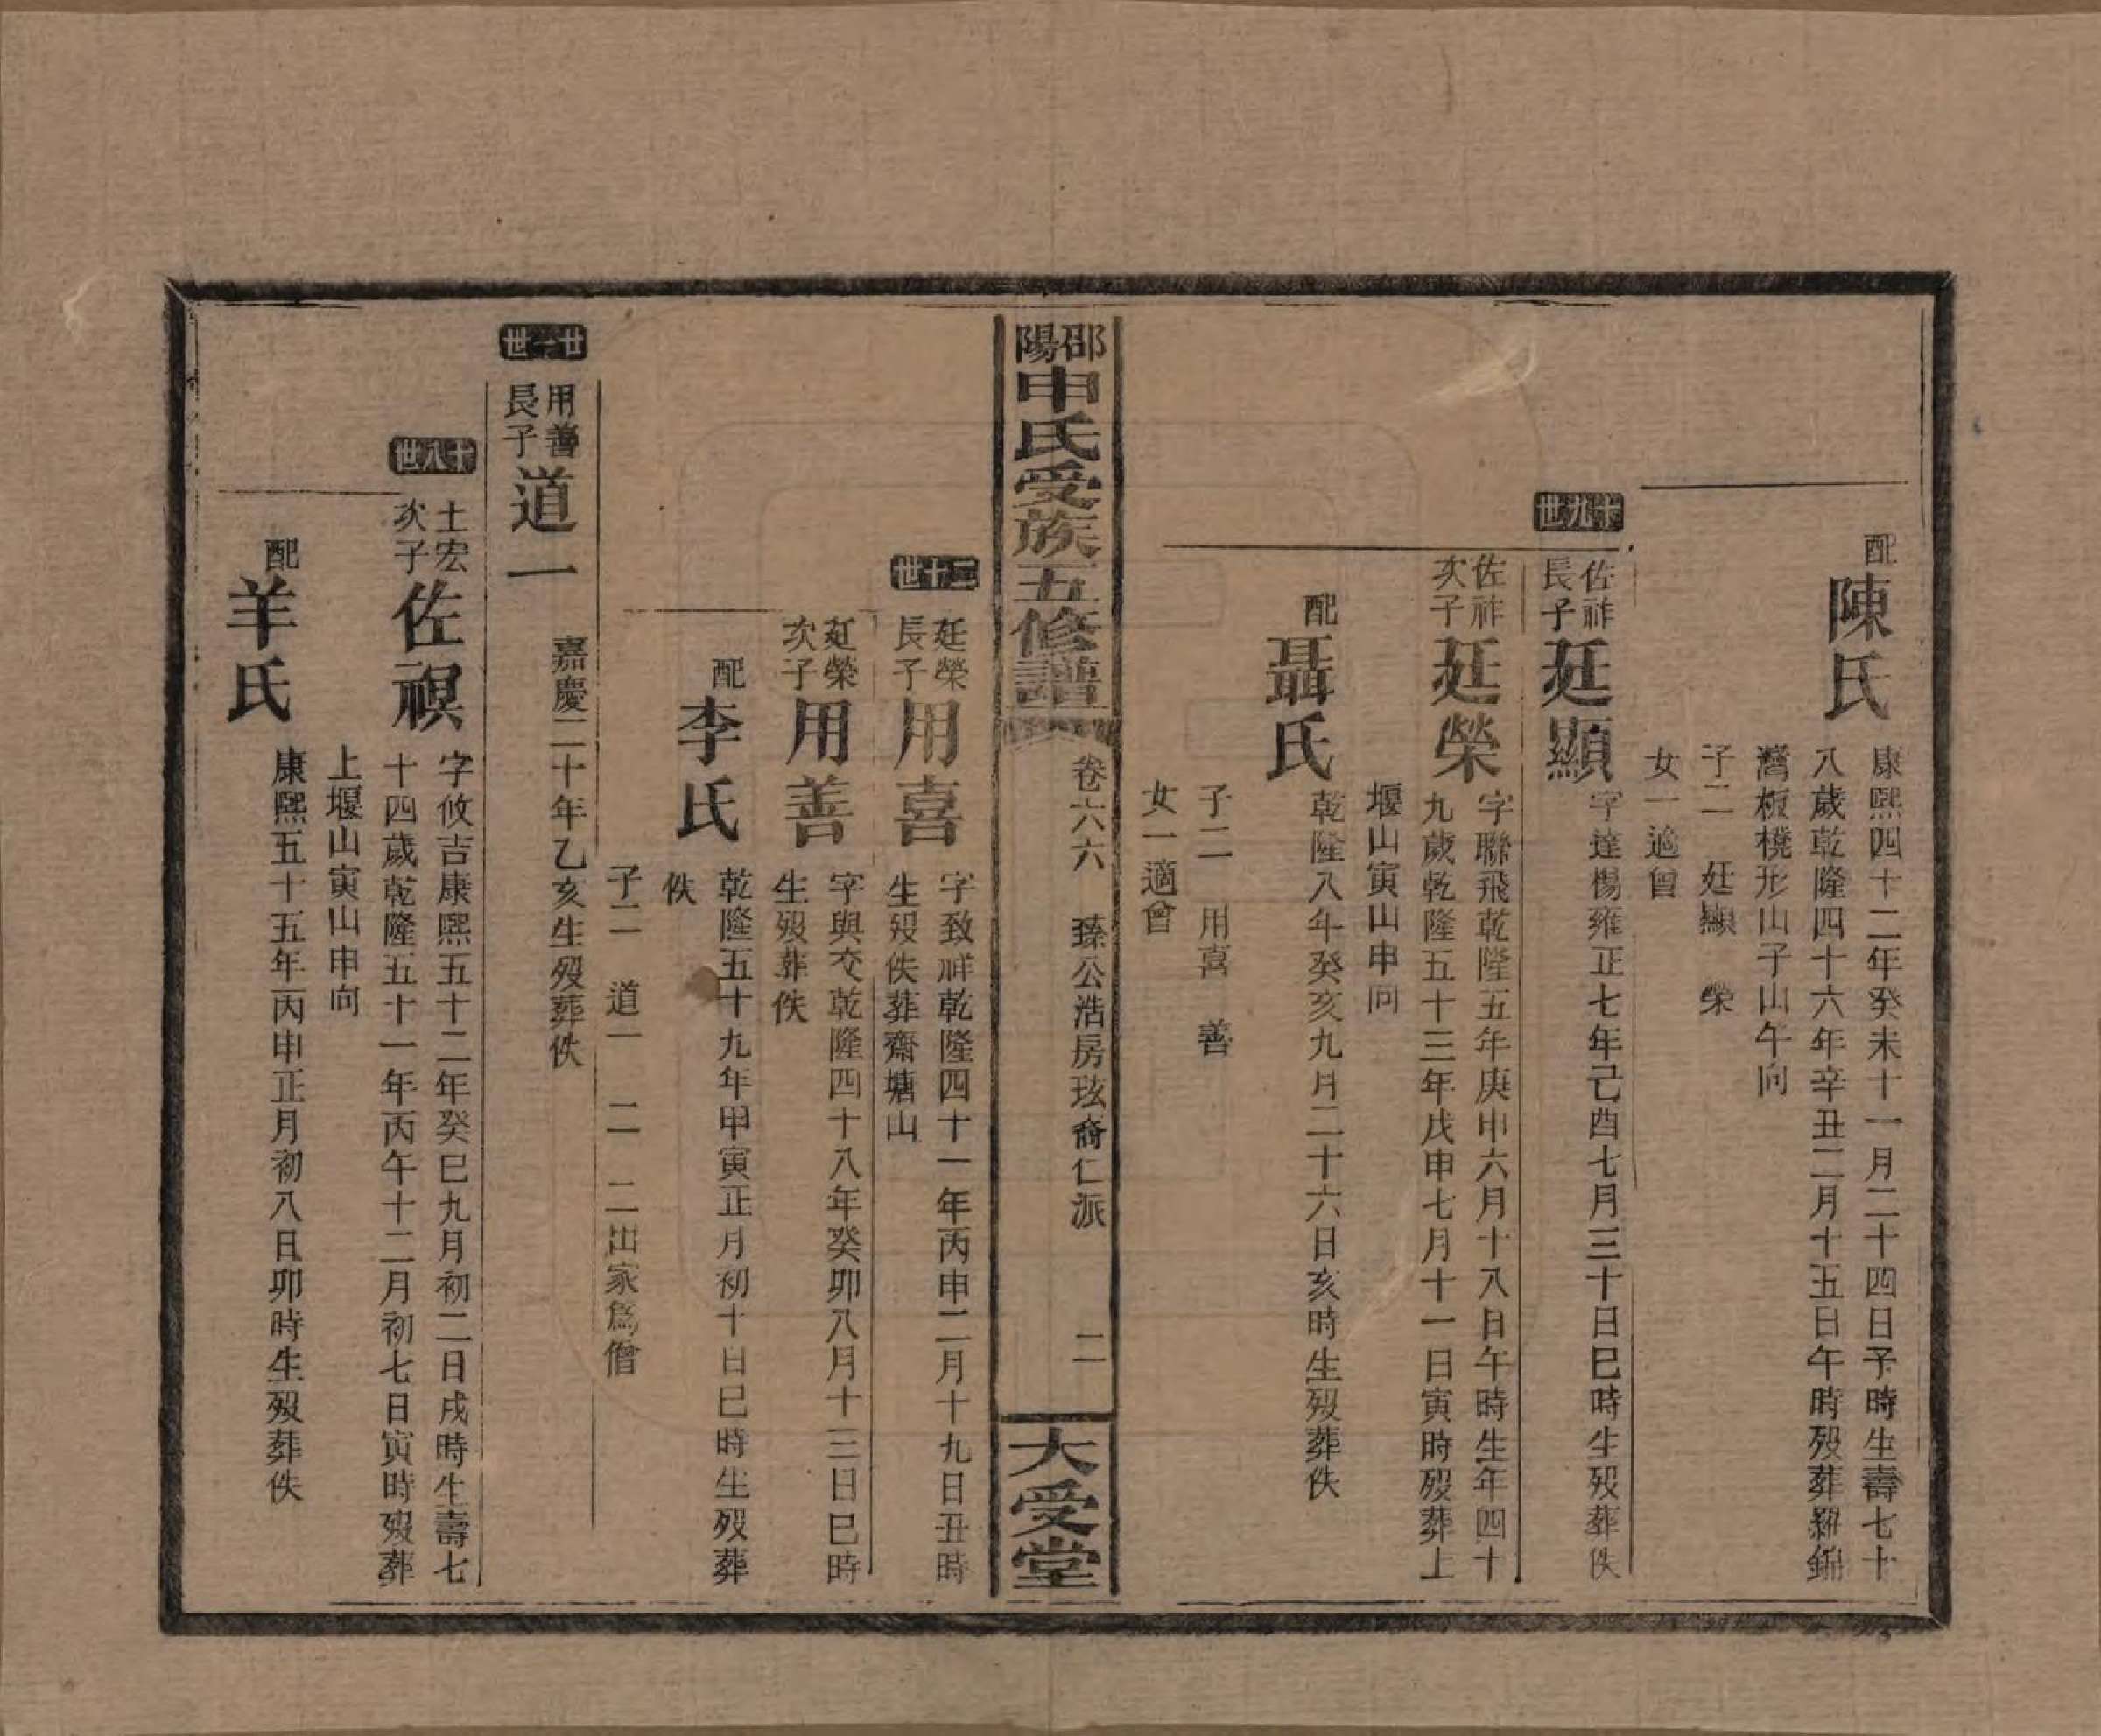 配陳氏
康熙四十二年癸未十一月二十四日予時生壽七十
八歲乾隆四十六年辛丑二月十五日午時歿葬羅錦
灣板橈形山子山午向
子二 廷顯 榮
女一適曾
十九世
佐祚長子廷顯
字達楊雍正七年己酉七月三十日巳時生歿葬佚
佐祚次子廷榮
字聯飛乾隆五年庚申六月十八日午時生年四十
九歲乾隆五十三年戊申七月十一日寅時歿葬上
堰山寅山申向
配聶氏
乾隆八年癸亥九月二十六日亥時生歿葬佚
子二 用喜 善
女一適曾
邵陽申氏受族五修譜
卷六六 臻公浩房玹裔仁派
二
大受堂
二十世
廷榮長子用喜
字致祥乾隆四十一年丙申二月十九日丑時
生歿佚葬齋塘山
廷榮次子用善
字與交乾隆四十八年癸卯八月十三日巳時
生歿葬佚
配李氏
乾隆五十九年甲寅正月初十日巳時生歿葬
佚
子二 道一 二 二出家爲僧
廿一世
用善長子道一
嘉慶二十年乙亥生歿葬佚
十八世
士宏次子佐祺
字攸吉康熙五十二年癸巳九月初二日戌時生壽七
十四歲乾隆五十一年丙午十二月初七日寅時歿葬
上堰山寅山申向
配羊氏
康熙五十五年丙申正月初八日卯時生歿葬佚